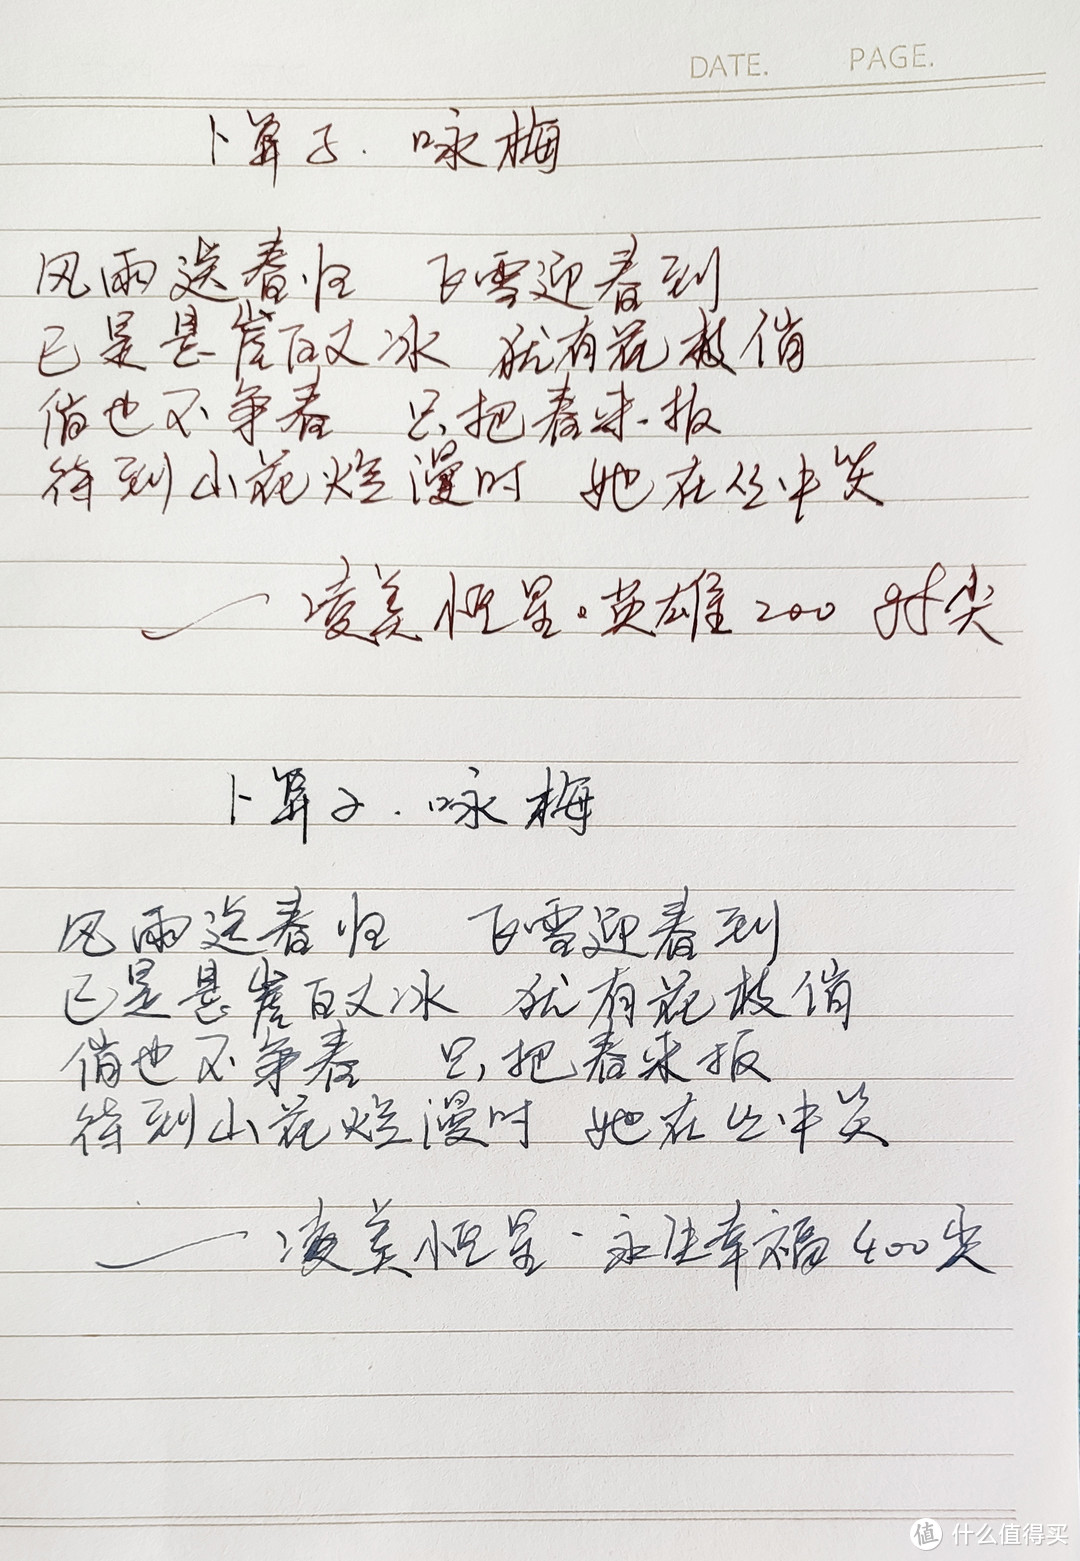 DATE. PAGE.
卜算子.咏梅
风雨送春归 飞雪迎春到
已是悬崖百丈冰 犹有花枝俏
俏也不争春 只把春来报
待到山花烂漫时 她在丛中笑
——凌美恒星·英雄200 尖
卜算子.咏梅
风雨送春归 飞雪迎春到
已是悬崖百丈冰 犹有花枝俏
俏也不争春 只把春来报
待到山花烂漫时 她在丛中笑
——凌美恒星·永生幸福400尖
值 什么值得买